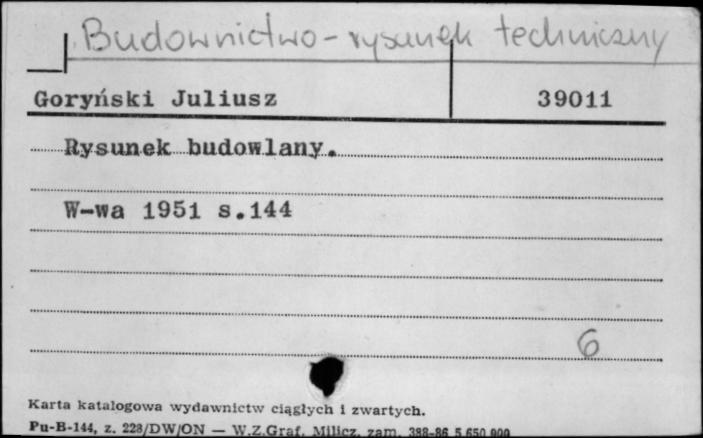 Budownictwo - rysunek techniczny
Goryński Juliusz 39011
Rysunek budowlany.
W-wa 1951 s.144
6
Karta katalogowa wydawnictw ciągłych i zwartych.
Pu-B-144, z. 228/DW/ON — W.Z.Graf. Milicz, zam. 388-86 5 650 000